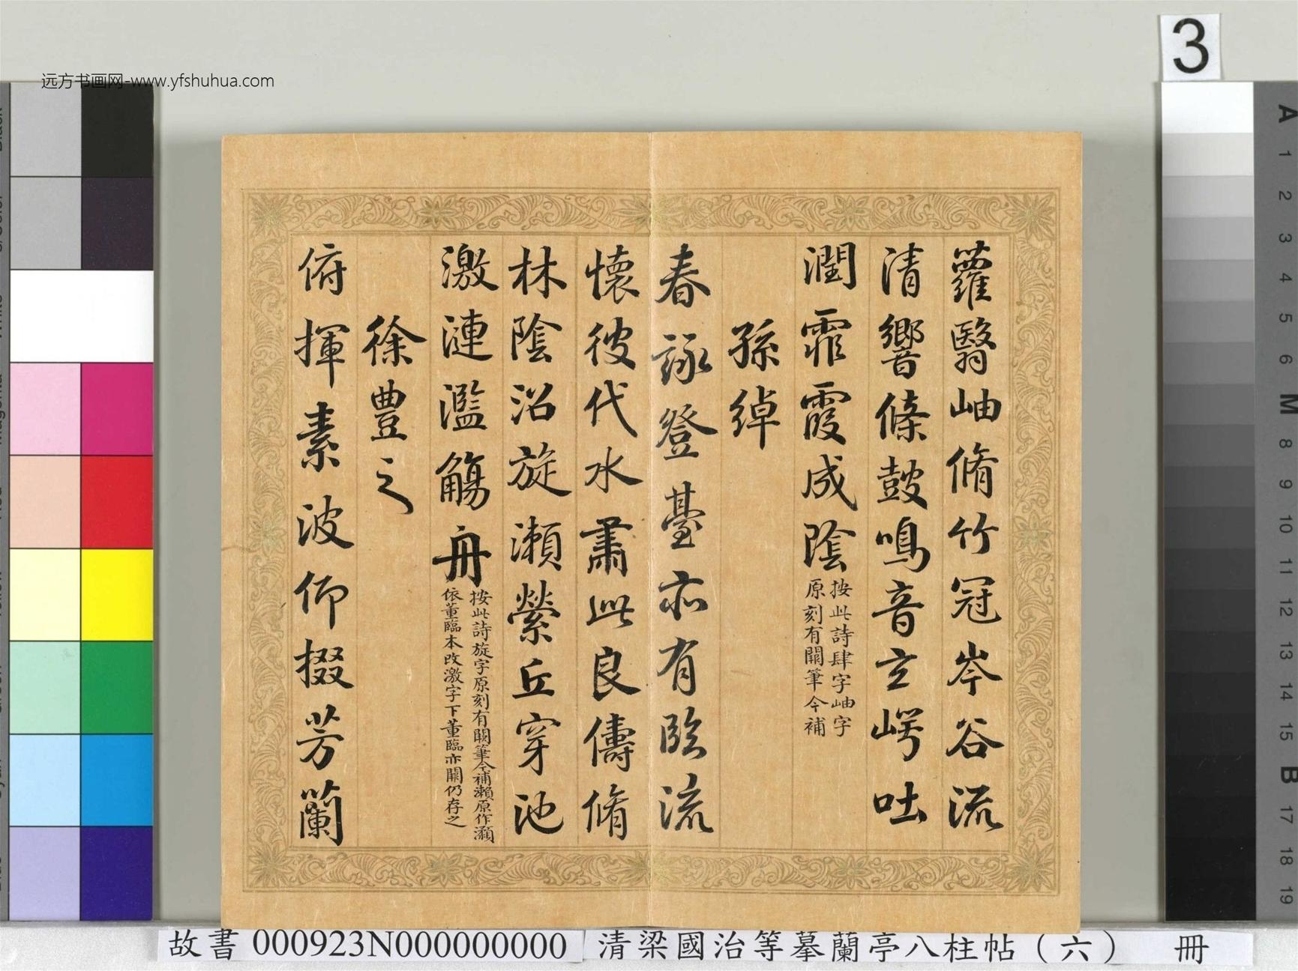 3
远方书画网-www.yfshuhua.com
蘿翳岫脩竹冠岑谷流
清響條鼓鳴音玄崿吐
潤霏霞成陰
按此詩肆字岫字
原刻有闕筆今補
孫綽
春詠登臺亦有臨流
懷彼伐水肅此良儔脩
林陰沼旋瀨縈丘穿池
激漣濫觴舟
按此詩旋字原刻有闕筆今補瀨原作灝
依董臨本改激字下董臨亦闕仍存之
徐豊之
俯揮素波仰掇芳蘭
A
1
2
3
4
5
6
M
8
9
10
11
12
13
14
15
B
17
18
19
故書 000923N000000000 清梁國治等摹蘭亭八柱帖（六） 冊